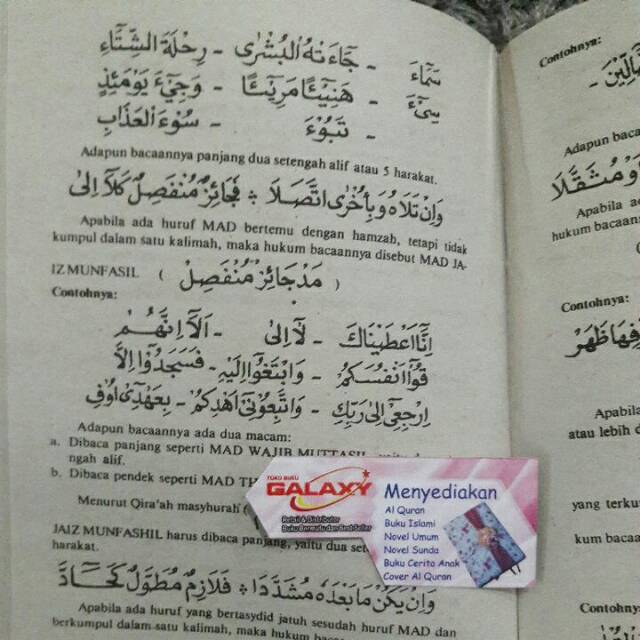 سَمَآءَ - جَآءَتْهُ الْبُشْرٰى - رِحْلَةَ الشِّتَآءِ
سِيْٓءَ - هَنِيْٓئًا مَرِيْٓئًا - وَجِيْٓءَ يَوْمَئِذٍ
- تَبُوْٓءَ - سُوْٓءَ الْعَذَابِ
Adapun bacaannya panjang dua setengah alif atau 5 harakat.
وَاِنْ تَلَاهُ وَبِاُخْرٰى اتَّصَلَا ❖ فَجَائِزٌ مُنْفَصِلٌ كَلَآ اِلٰى
Apabila ada huruf MAD bertemu dengan hamzah, tetapi tidak
kumpul dalam satu kalimah, maka hukum bacaannya disebut MAD JA-
IZ MUNFASIL ( مَدْ جَائِزْ مُنْفَصِلْ )
Contohnya:
اِنَّآ اَعْطَيْنَاكَ - لَآ اِلٰى - اَلَآ اِنَّهُمْ
قُوْٓا اَنْفُسَكُمْ - وَابْتَغُوْٓا اِلَيْهِ - فَسَجَدُوْٓا اِلَّا
اِرْجِعِيْٓ اِلٰى رَبِّكِ - وَاتَّبِعُوْنِيْٓ اَهْدِكُمْ - بِعَهْدِيْٓ اُوْفِ
Adapun bacaannya ada dua macam:
a. Dibaca panjang seperti MAD WAJIB MUTTASIL
ngah alif.
b. Dibaca pendek seperti MAD TH
Menurut Qira'ah masyhurah (
JAIZ MUNFASHIL harus dibaca panjang, yaitu dua set
harakat.
وَاِنْ يَكُنْ مَا بَعْدَهُ مُشَدَّدًا ❖ فَلَازِمٌ مُطَوَّلٌ كَحَآدَّ
Apabila ada huruf yang bertasydid jatuh sesudah huruf MAD dan
berkumpul dalam satu kalimah, maka hukum bacaan
TOKO BUKU
GALAXY
Retail & Distributor
Buku Bermutu dan Best Seller
Menyediakan
Al Quran
Buku Islami
Novel Umum
Novel Sunda
Buku Cerita Anak
Cover Al Quran
Contohnya:
Adapun baca
وَمُثَقَّلًا
Apabila a
hukum bacaan
Contohnya:
فِيهَا ظَهَرَ
Apabila
atau lebih d
yang terku
kum bacaa
Contohnya